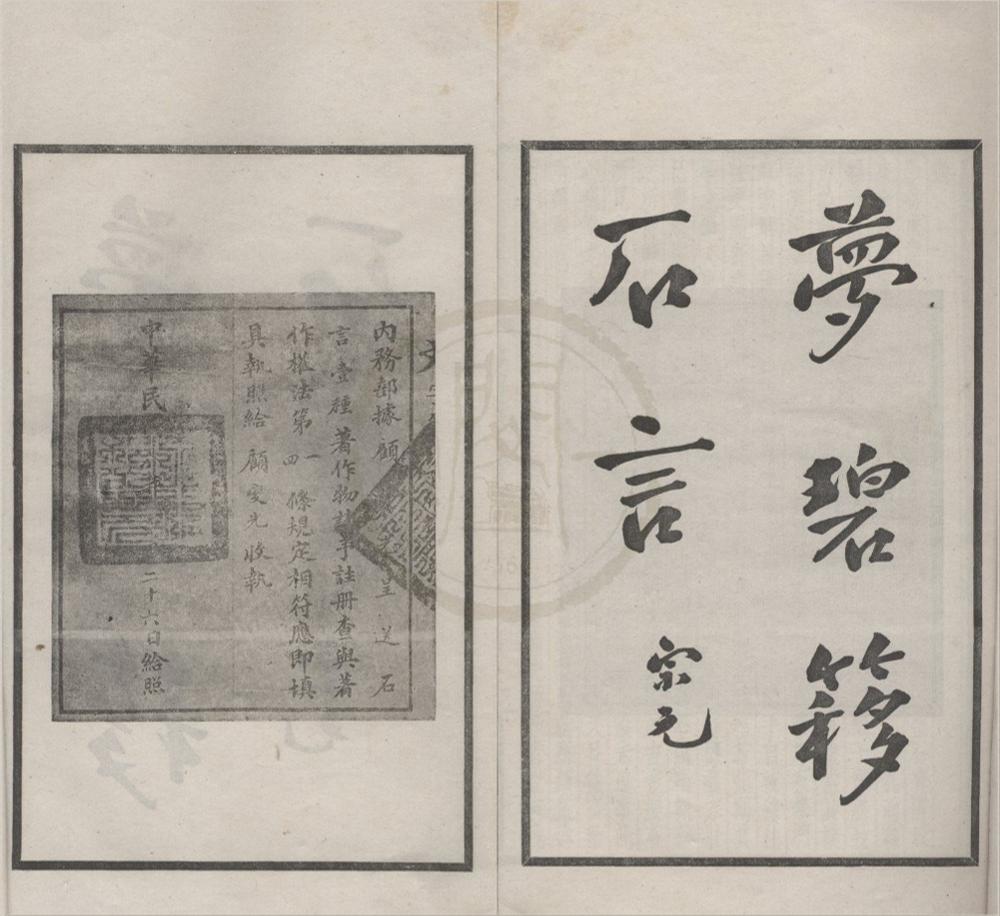 夢碧簃
石言
宗元
內務部據顧燮光呈送石
言壹種著作物註冊查與著
作權法第一四條規定相符應即填
具執照給顧燮光收執
中華民
二十六日給照